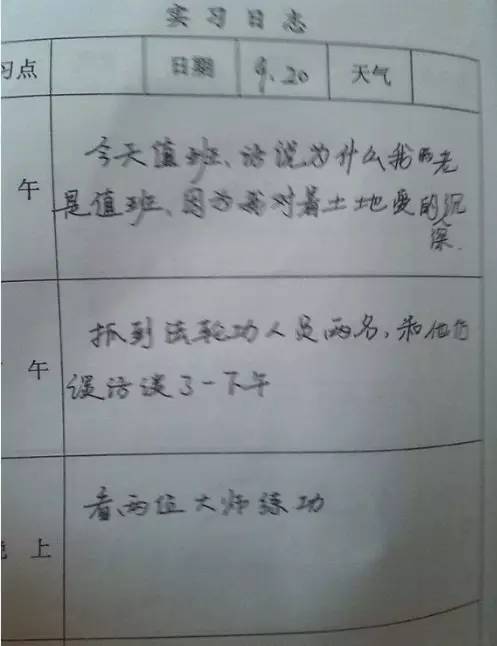 实习日志
习点 日期 9.20 天气
午 今天值班、话说为什么我的老
是值班、因为我对着土地爱的沉
深.
午 抓到法轮功人员两名、和他们
谈话谈了一下午
看两位大师练功
晚上